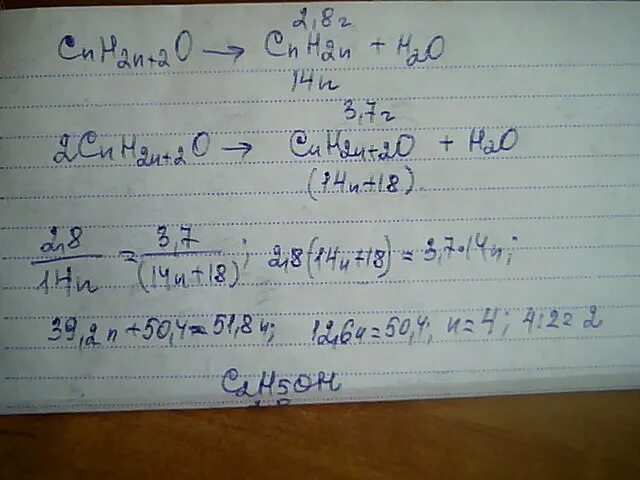 2,8г
CnH2n+2O → CnH2n + H2O
14n
3,7г
2CnH2n+2O → CnH2n+2O + H2O
(14n+18)
2,8/14n = 3,7/(14n+18); 2,8(14n+18) = 3,7·14n;
39,2n+50,4=51,8n; 12,6n=50,4; n=4; 4:2=2
C2H5OH